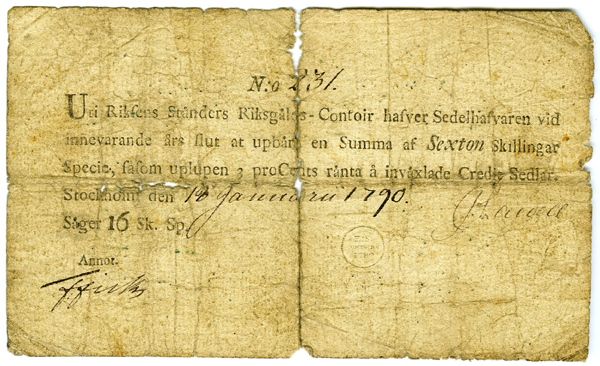 N:o 231.
Uti Riksens Ständers Riksgälds-Contoir hafver Sedelhafvaren vid
innevarande års slut at upbära en Summa af Sexton Skillingar
Specie, såsom uplupen 3 proCents ränta å inväxlade Credit Sedlar.
Stockholm den 18 Januarii 1790.
Säger 16 Sk. Sp.
Annot.